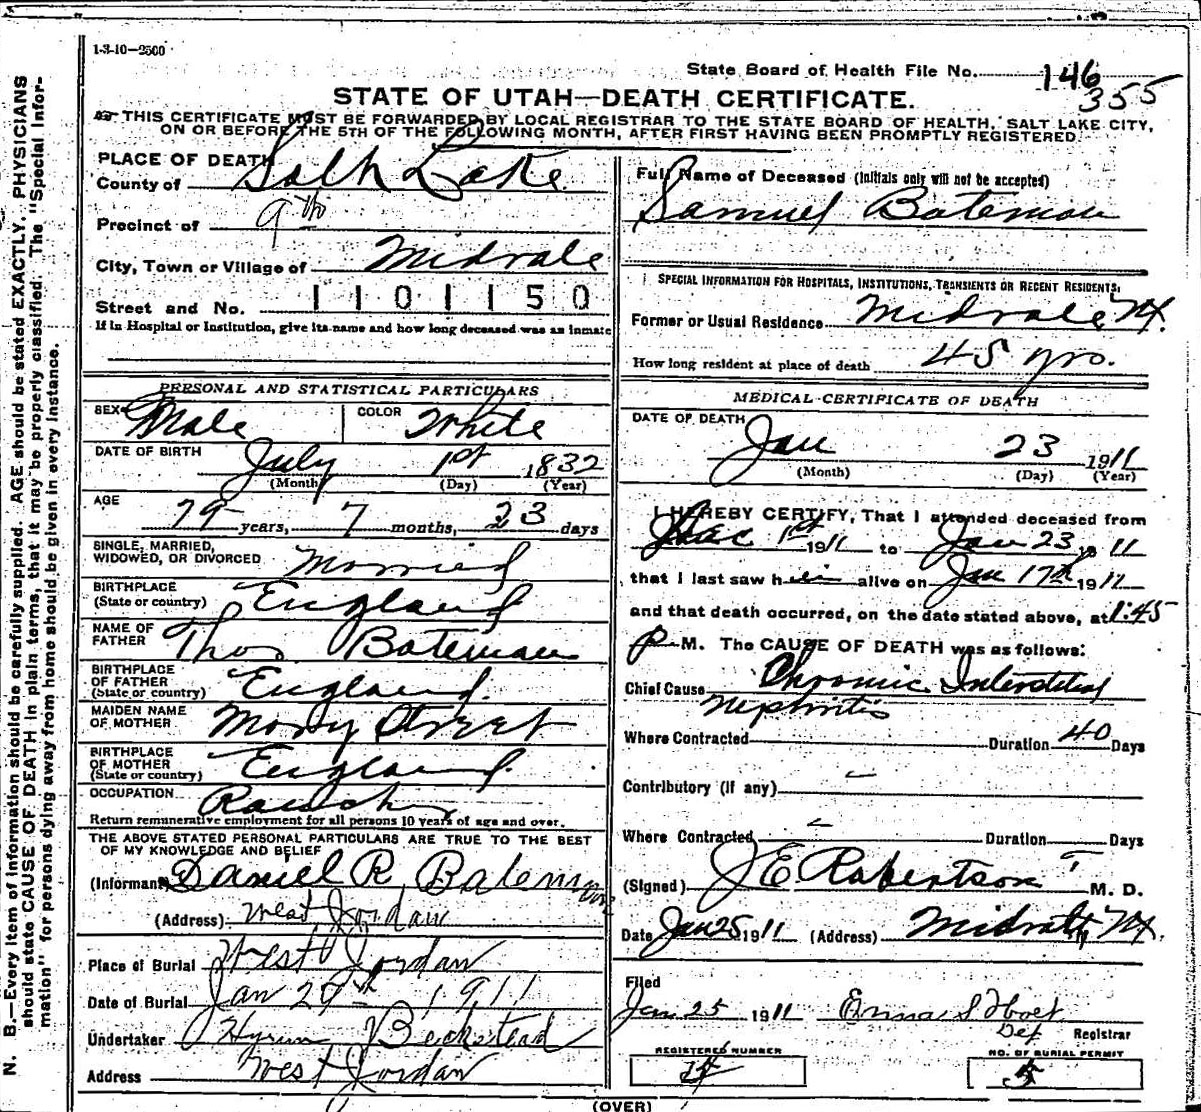 1-3-10—2500
State Board of Health File No. 146
355
STATE OF UTAH—DEATH CERTIFICATE.
THIS CERTIFICATE MUST BE FORWARDED BY LOCAL REGISTRAR TO THE STATE BOARD OF HEALTH, SALT LAKE CITY,
ON OR BEFORE THE 5TH OF THE FOLLOWING MONTH, AFTER FIRST HAVING BEEN PROMPTLY REGISTERED.
N. B.—Every item of information should be carefully supplied. AGE should be stated EXACTLY. PHYSICIANS
should state CAUSE OF DEATH in plain terms, that it may be properly classified. The "Special Infor-
mation" for persons dying away from home should be given in every instance.
PLACE OF DEATH
County of Salt Lake
Precinct of 9th
City, Town or Village of Midvale
Street and No. 1101150
If in Hospital or Institution, give its name and how long deceased was an inmate
PERSONAL AND STATISTICAL PARTICULARS
SEX Male COLOR White
DATE OF BIRTH July 1st 1832
(Month) (Day) (Year)
AGE 79 years, 7 months, 23 days
SINGLE, MARRIED,
WIDOWED, OR DIVORCED Married
BIRTHPLACE
(State or country) England
NAME OF
FATHER Thos Bateman
BIRTHPLACE
OF FATHER
(State or country) England
MAIDEN NAME
OF MOTHER Mary Street
BIRTHPLACE
OF MOTHER
(State or country) England
OCCUPATION
Return remunerative employment for all persons 10 years of age and over.
THE ABOVE STATED PERSONAL PARTICULARS ARE TRUE TO THE BEST
OF MY KNOWLEDGE AND BELIEF
(Informant) Daniel R Bateman
(Address) West Jordan
Place of Burial West Jordan
Date of Burial Jan 29th 1911
Undertaker Hyrum Beckstead
Address West Jordan
Full Name of Deceased (Initials only will not be accepted)
Samuel Bateman
SPECIAL INFORMATION FOR HOSPITALS, INSTITUTIONS, TRANSIENTS OR RECENT RESIDENTS.
Former or Usual Residence Midvale Ut.
How long resident at place of death 45 yrs.
MEDICAL CERTIFICATE OF DEATH
DATE OF DEATH
Jan 23 1911
(Month) (Day) (Year)
I HEREBY CERTIFY, That I attended deceased from
1st 1911 to Jan 23 1911
that I last saw him alive on Jan 17th 1911
and that death occurred, on the date stated above, at 1:45
P M. The CAUSE OF DEATH was as follows:
Chief Cause Chronic Interstitial
Nephritis
Where Contracted Duration 40 Days
Contributory (if any) -
Where Contracted - Duration Days
(Signed) J E Robertson M. D.
Date Jan 25 1911 (Address) Midvale Ut.
Filed
Jan 25 1911 Emma S
Dep Registrar
REGISTERED NUMBER NO. OF BURIAL PERMIT
5
(OVER)